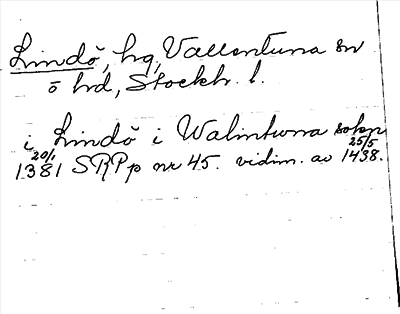 Lindö, hg, Vallentuna sn
ö hd, Stockh. l.
i Lindö i Walintuna sokn
20/1 1381 SRPp nr 45. vidim. av 25/5 1438.